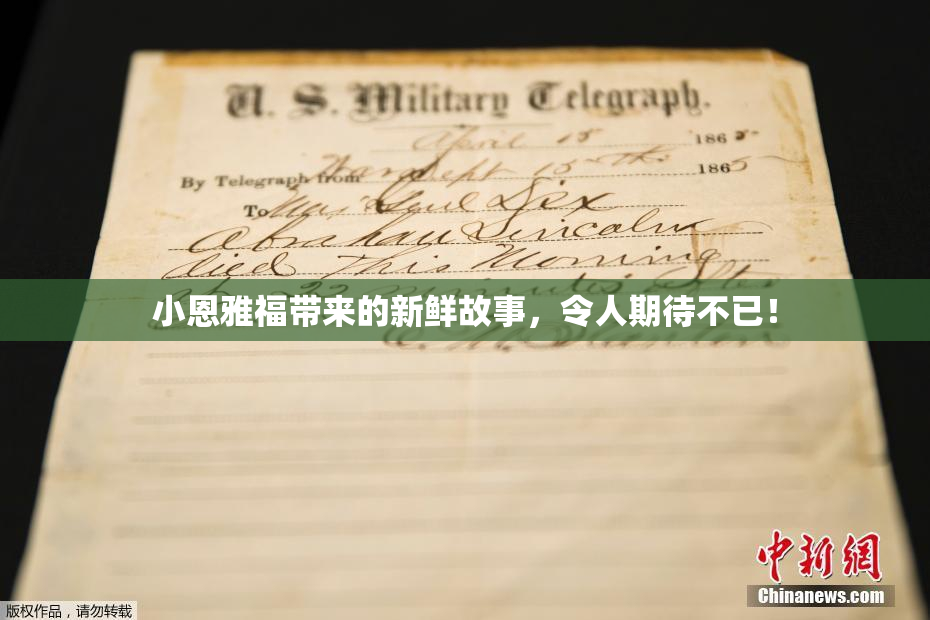 U. S. Military Telegraph.
April 15 1865
By Telegraph from War Dept 15th 1865
To Maj Genl Dix
Abraham Lincoln
died This Morning
at 22 minutes after
小恩雅福带来的新鲜故事，令人期待不已！
E. M. Stanton
中新網
Chinanews.com
版权作品，请勿转载